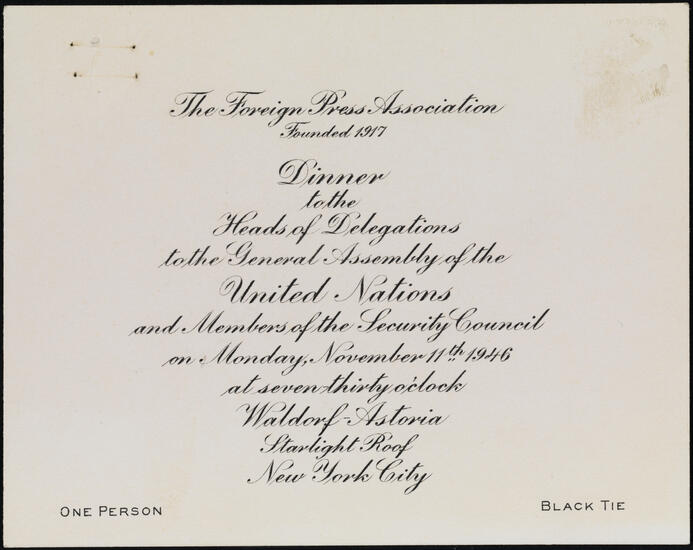 The Foreign Press Association
Founded 1917
Dinner
to the
Heads of Delegations
to the General Assembly of the
United Nations
and Members of the Security Council
on Monday, November 11th 1946
at seven-thirty o'clock
Waldorf-Astoria
Starlight Roof
New York City
ONE PERSON
BLACK TIE